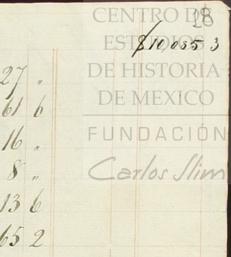 CENTRO DE
28
ESTUDIOS
$10035 3
DE HISTORIA
27 "
DE MEXICO
61 6
FUNDACIÓN
16 "
Carlos Slim
8 "
13 6
65 2